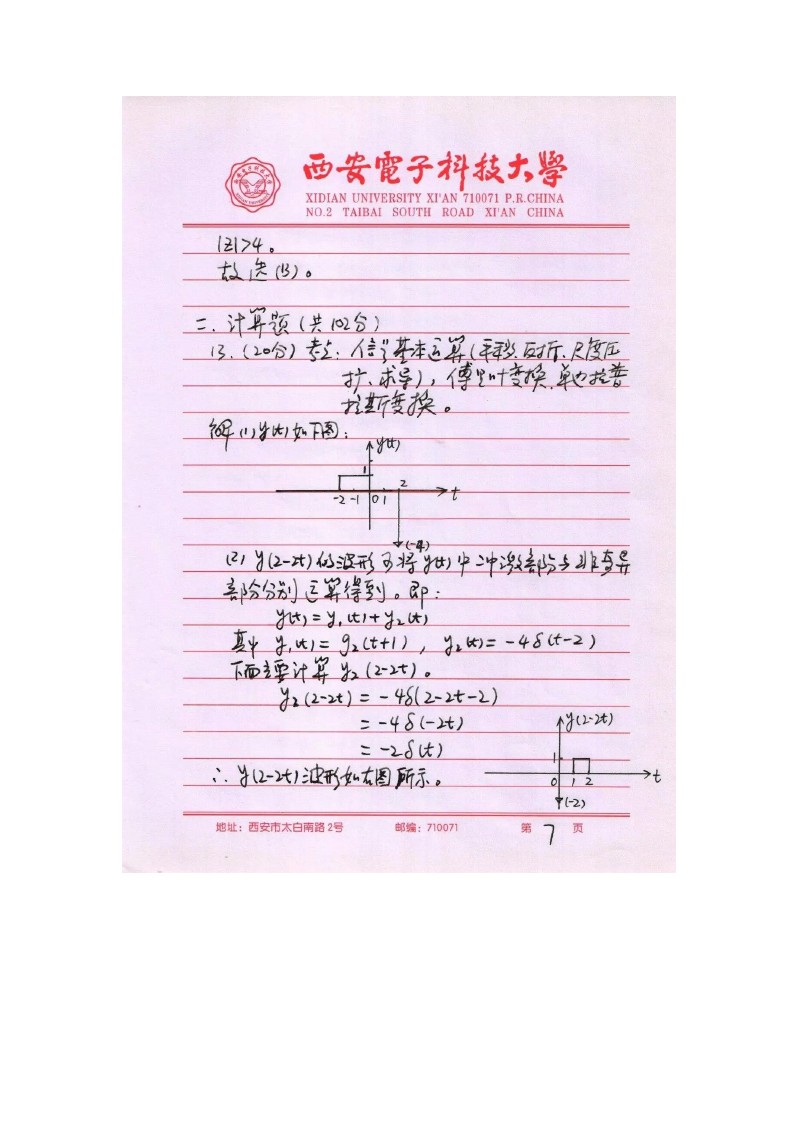 西安電子科技大學
XIDIAN UNIVERSITY XI'AN 710071 P.R.CHINA
NO.2 TAIBAI SOUTH ROAD XI'AN CHINA
|z|>4。
故选(B)。
二.计算题(共102分)
13.(20分)考点:信号基本运算(平移、反折、尺度压
扩、求导),傅里叶变换,单边拉普
拉斯变换。
解(1)y(t)如下图:
y(t)
1
2
-2 -1 0 1 t
(-4)
(2) y(2-2t)的波形可将y(t)中冲激部分与非奇异
部分分别运算得到。即:
y(t)=y₁(t)+y₂(t)
其中 y₁(t)=g₂(t+1), y₂(t)=-4δ(t-2)
下面主要计算 y₂(2-2t)。
y₂(2-2t)=-4δ(2-2t-2)
=-4δ(-2t)
=-2δ(t)
∴ y(2-2t)波形如右图所示。
y(2-2t)
1
0 1 2 t
(-2)
地址:西安市太白南路2号 邮编:710071 第 7 页